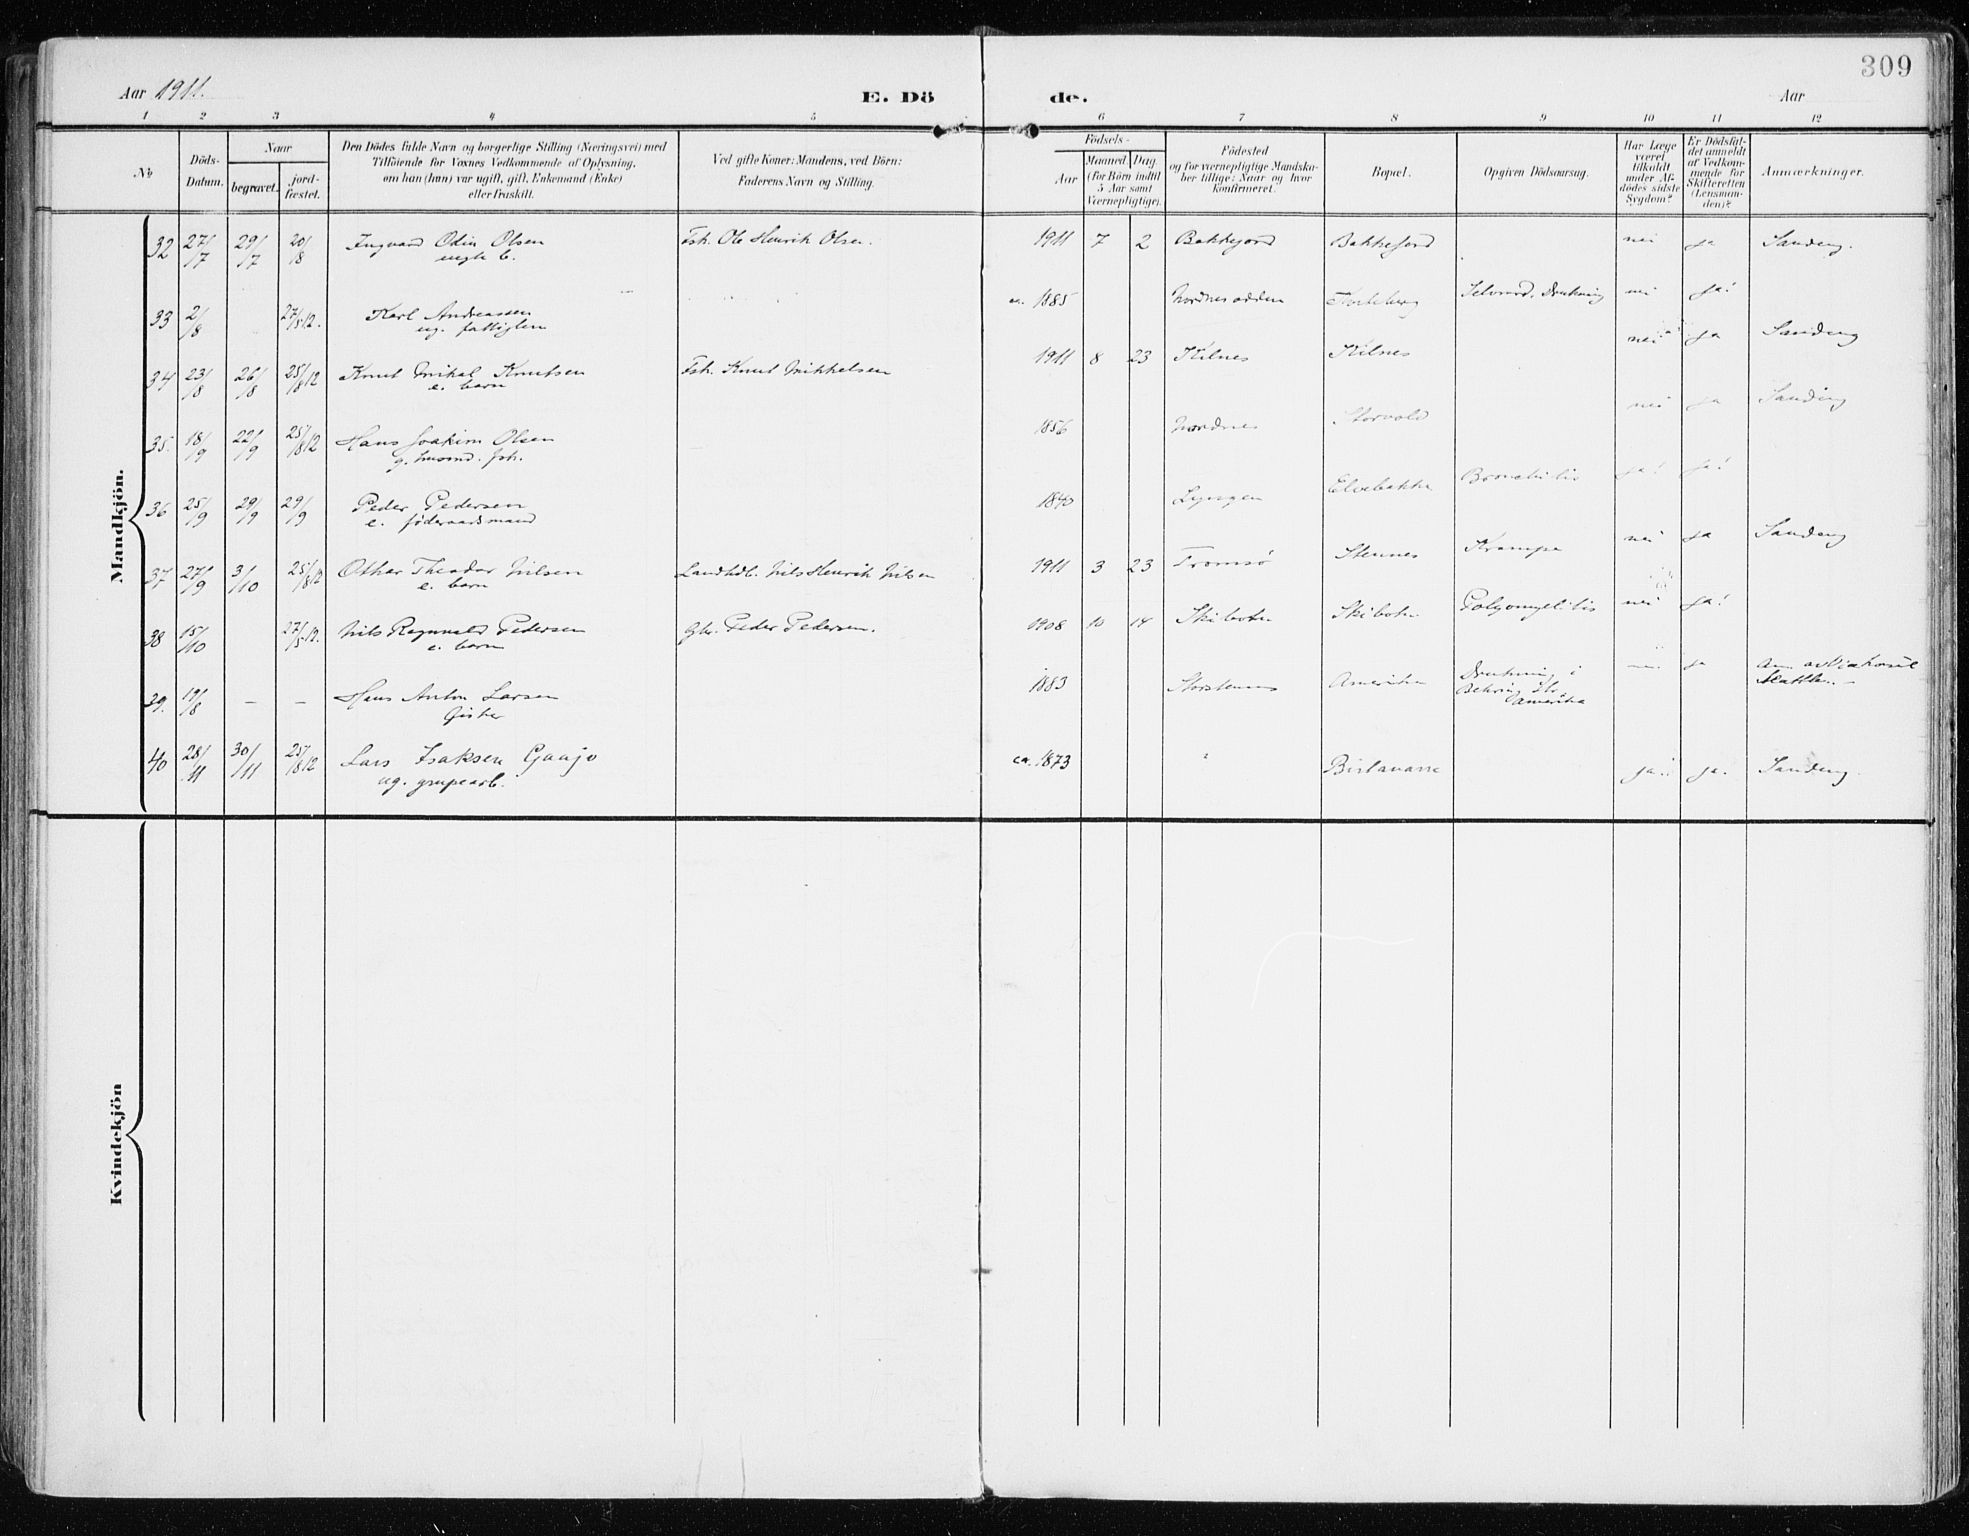 309
Aar 1911.
E. Dö
de.
Aar
1 2 3 4 5 6 7 8 9 10 11 12
No
Döds-
Datum.
Naar
begravet.
jord-
fæstet.
Den Dödes fulde Navn og borgerlige Stilling (Næringsvei) med
Tilföiende for Voxnes Vedkommende af Oplysning,
om han (hun) var ugift, gift, Enkemand (Enke)
eller fraskilt.
Ved gifte Koner: Mandens, ved Börn:
Faderens Navn og Stilling.
Födsels-
Aar
Maaned. Dag.
(for Börn indtil
5 Aar samt
Værnepligtige).
Födested
og for værnepligtige Mandska-
ber tillige: Naar og hvor
konfirmeret.
Bopæl.
Opgiven Dödsaarsag.
Har Læge
været
tilkaldt
under Af-
dödes sidste
Sygdom?
Er Dödsfal-
det anmeldt
af Vedkom-
mende for
Skifteretten
(Lensman-
den)?
Anmærkninger.
Mandkjön.
32 27/7 29/7 20/8 Ingvard Odin Olsen Fsk. Ole Henrik Olsen. 1911 7 2 Bakkejord Bakkejord nei ja Sandeng.
33 2/8 27/5 12. Karl Andreassen ca. 1885 Nordnesodden Drukning nei ja!
ug. fattiglem
34 23/8 26/8 25/8 12 Knut Mikal Knutsen Fsk. Knut Mikkelsen 1911 8 23 Kilnes Kilnes nei ja Sandeng
e. barn
35. 18/9 22/9 25/8 12 Hans Joakim Olsen 1856 Nordnes Storvold nei ja Sandeng
g. husmd. fsk.
36 25/9 29/9 29/9 Peder Pedersen 1840 Lyngen Elvebakke ja! ja!
e. föderaadsmand
37 27/9 3/10 25/8 12 Othar Theodor Nilsen Landhdl. Nils Henrik Nilsen 1911 3 23 Tromsö Stennes Krampe nei ja Sandeng
e. barn
38 15/10 27/5 12. Nils Ragnvald Pedersen Gbr. Peder Pedersen. 1908 10 14 Skibotn Skibotn Polyomyelitis nei ja!
e. barn
39. 19/8 – – Hans Anton Larsen 1883 Storstennes Amerika Drukning i ja
Fisker Behring Str. Amerika
40 28/11 30/11 25/8 12 Lars Isaksen Gaajo ca. 1873 " Birtavarre ja! ja. Sandeng.
ug. grupearb.
Kvindekjön